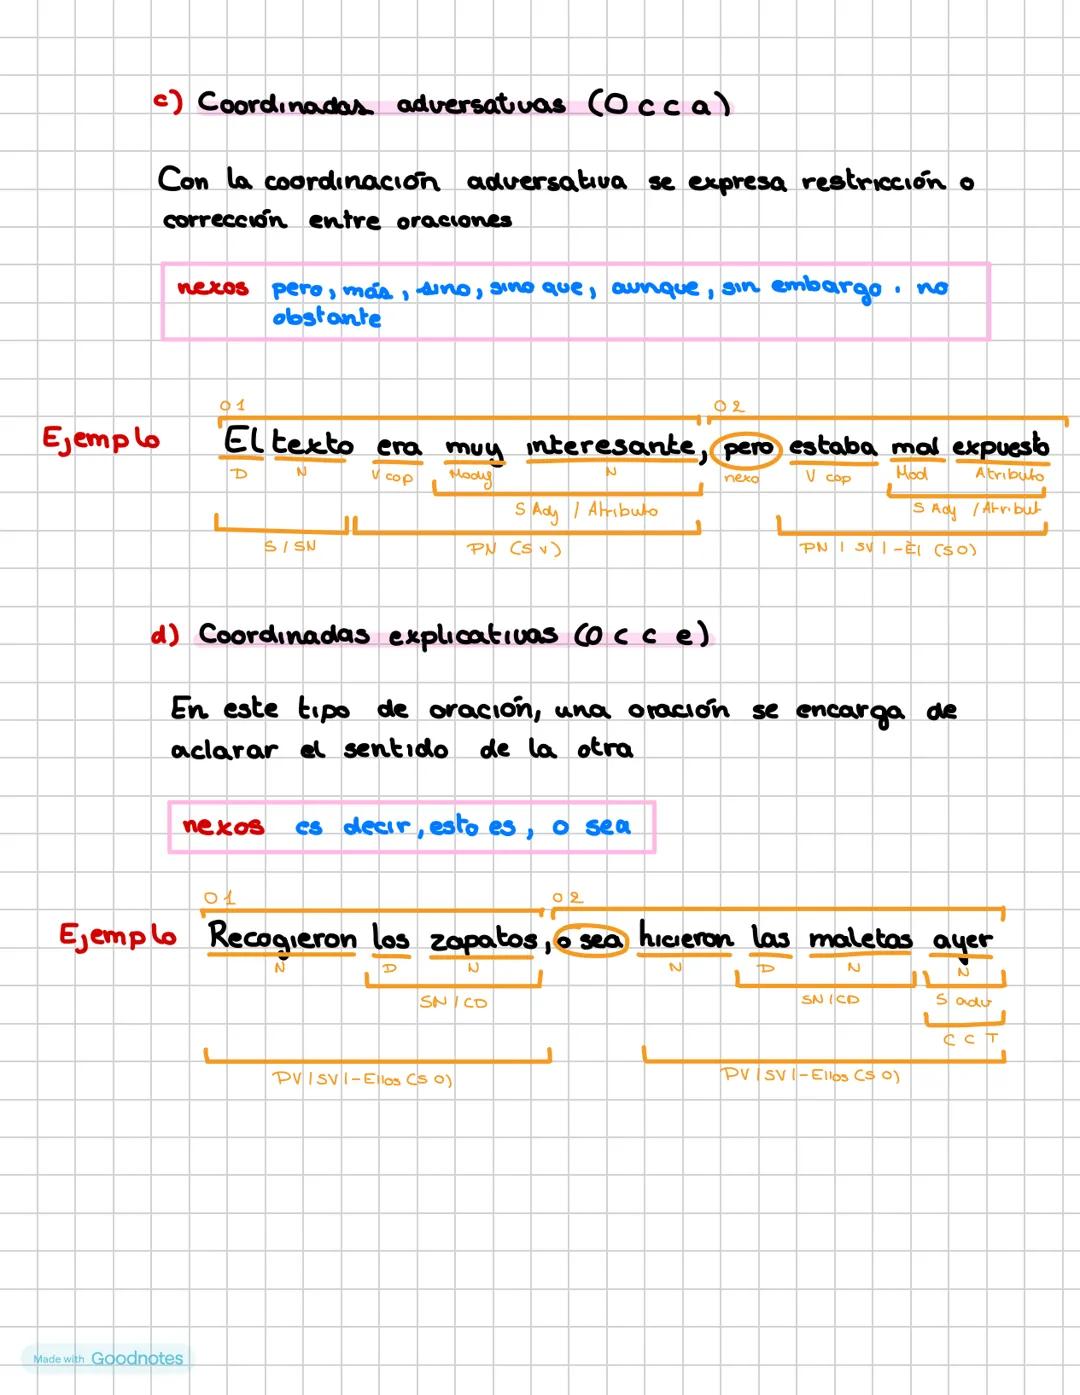 c) Coordinadas adversativas (O c c a)
Con la coordinación adversativa se expresa restricción o
corrección entre oraciones
nexos pero, más, sino, sino que, aunque, sin embargo. no
obstante
O1 O2
Ejemplo El texto era muy interesante, pero estaba mal expuesto
D N V cop Mody N nexo V cop Mod Atributo
S Ady / Atributo S Ady / Atribut
S / SN PN (S V) PN | SV | -Él (SO)
d) Coordinadas explicativas (O c c e)
En este tipo de oración, una oración se encarga de
aclarar el sentido de la otra
nexos es decir, esto es, o sea
O1 O2
Ejemplo Recogieron los zapatos, o sea hicieron las maletas ayer
N D N N D N N
SN / CD SN / CD S adv
C C T
PV | SV | -Ellos (S O) PV | SV | -Ellos (S O)
Made with Goodnotes